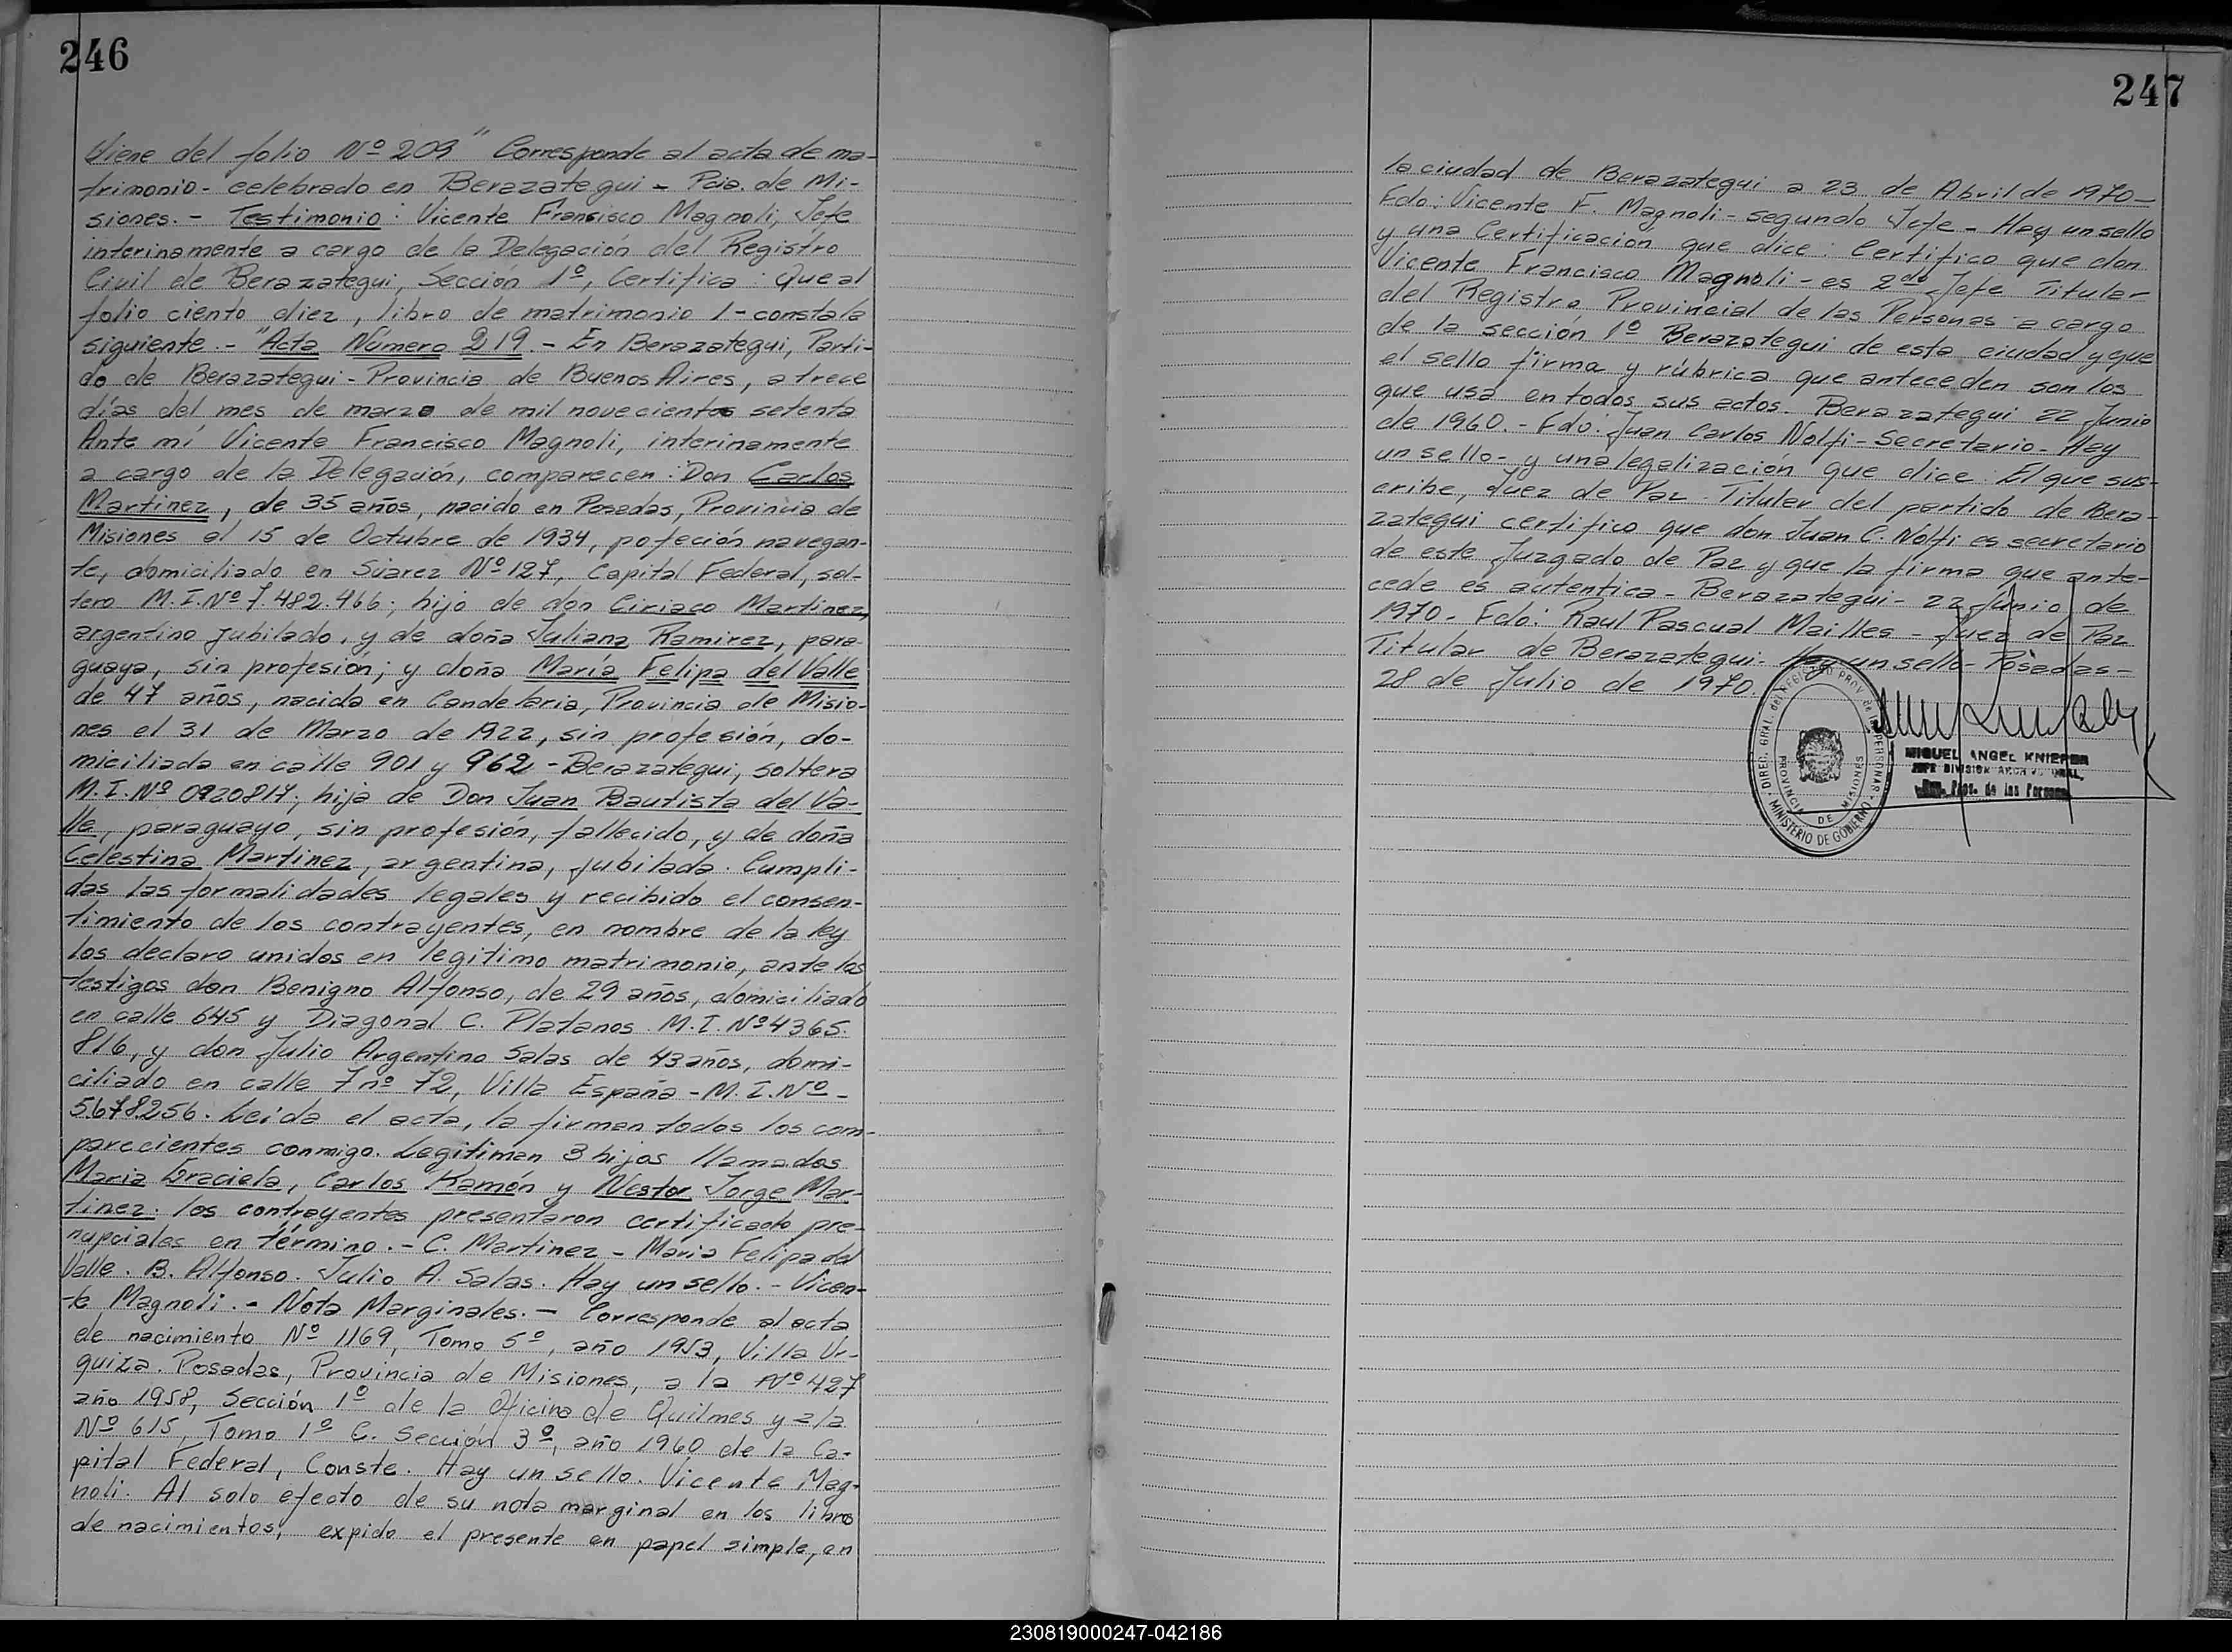 246
Viene del folio Nº 209" Corresponde al acta de ma-
trimonio - celebrado en Berazategui - Pcia. de Mi-
siones. - Testimonio: Vicente Fransisco Magnoli, Jefe
interinamente a cargo de la Delegación del Registro
Civil de Berazategui, Sección 1º, Certifica: Que al
folio ciento diez, libro de matrimonio 1 - consta la
siguiente. - "Acta Número 219. - En Berazategui, Parti-
do de Berazategui - Provincia de Buenos Aires, a trece
días del mes de marzo de mil novecientos setenta
Ante mí Vicente Francisco Magnoli, interinamente
a cargo de la Delegación, comparecen: Don Carlos
Martinez, de 35 años, nacido en Posadas, Provincia de
Misiones el 15 de Octubre de 1934, pofeción navegan-
te, domiciliado en Suarez Nº 127, Capital Federal, sol-
tero M.I. Nº 7.482.466; hijo de don Ciriaco Martinez,
argentino jubilado, y de doña Juliana Ramirez, para-
guaya, sin profesión; y doña María Felipa del Valle
de 47 años, nacida en Candelaria, Provincia de Misio-
nes el 31 de Marzo de 1922, sin profesión, do-
miciliada en calle 901 y 962 - Berazategui, soltera
M.I. Nº 0920817; hija de Don Juan Bautista del Va-
lle, paraguayo, sin profesión, fallecido, y de doña
Celestina Martinez, argentina, jubilada. Cumpli-
das las formalidades legales y recibido el consen-
timiento de los contrayentes, en nombre de la ley
los declaro unidos en legitimo matrimonio, ante los
testigos don Benigno Alfonso, de 29 años, domiciliado
en calle 645 y Diagonal C. Platanos M.I. Nº 4365.
816, y don Julio Argentino Salas de 43 años, domi-
ciliado en calle 7 nº 72, Villa España - M.I. Nº -
5678256. Leida el acta, la firman todos los com-
parecientes conmigo. Legitiman 3 hijos llamados
Maria Graciela, Carlos Ramón y Nestor Jorge Mar-
tinez. los contrayentes presentaron certificado pre-
nupciales en término. - C. Martinez - Maria Felipa del
Valle. B. Alfonso. Julio A. Salas. Hay un sello. - Vicen-
te Magnoli. - Nota Marginales. - Corresponde al acta
de nacimiento Nº 1169, Tomo 5º, año 1953, Villa Ur-
quiza. Posadas, Provincia de Misiones, a la Nº 427
año 1958, Sección 1º de la Oficina de Quilmes y a la
Nº 615, Tomo 1º C. Sección 3º, año 1960 de la Ca-
pital Federal, Conste. Hay un sello. Vicente Mag-
noli. Al solo efecto de su nota marginal en los libros
de nacimientos, expido el presente en papel simple, en
247
la ciudad de Berazategui a 23 de Abril de 1970 -
Fdo: Vicente F. Magnoli - segundo Jefe - Hay un sello
y una Certificación que dice: Certifico que don
Vicente Francisco Magnoli - es 2do Jefe Titular
del Registro Provincial de las Personas a cargo
de la sección 1º Berazategui de esta ciudad y que
el sello firma y rúbrica que anteceden son los
que usa en todos sus actos. Berazategui 22 Junio
de 1960. - Fdo: Juan Carlos Nolfi - Secretario - Hay
un sello - y una legalización que dice: El que sus-
cribe, Juez de Paz Titular del partido de Bera-
zategui certifico que don Juan C. Nolfi es secretario
de este Juzgado de Paz y que la firma que ante-
cede es autentica - Berazategui - 22 Junio de
1970 - Fdo: Raul Pascual Mailles - Juez de Paz
Titular de Berazategui - Hay un sello - Posadas -
28 de Julio de 1970.
DIREC. GRAL. del REGISTRO PROV. de las PERSONAS
PROVINCIA DE MISIONES
MINISTERIO DE GOBIERNO
MIGUEL ANGEL KNIEPER
JEFE DIVISION ARCHIVO GRAL.
Prov. de las Personas
230819000247-042186